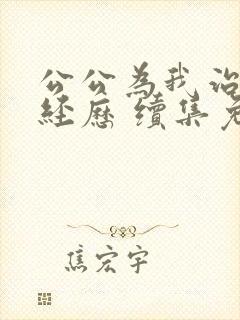 公公為我治
經歷 續集
焦宏宇